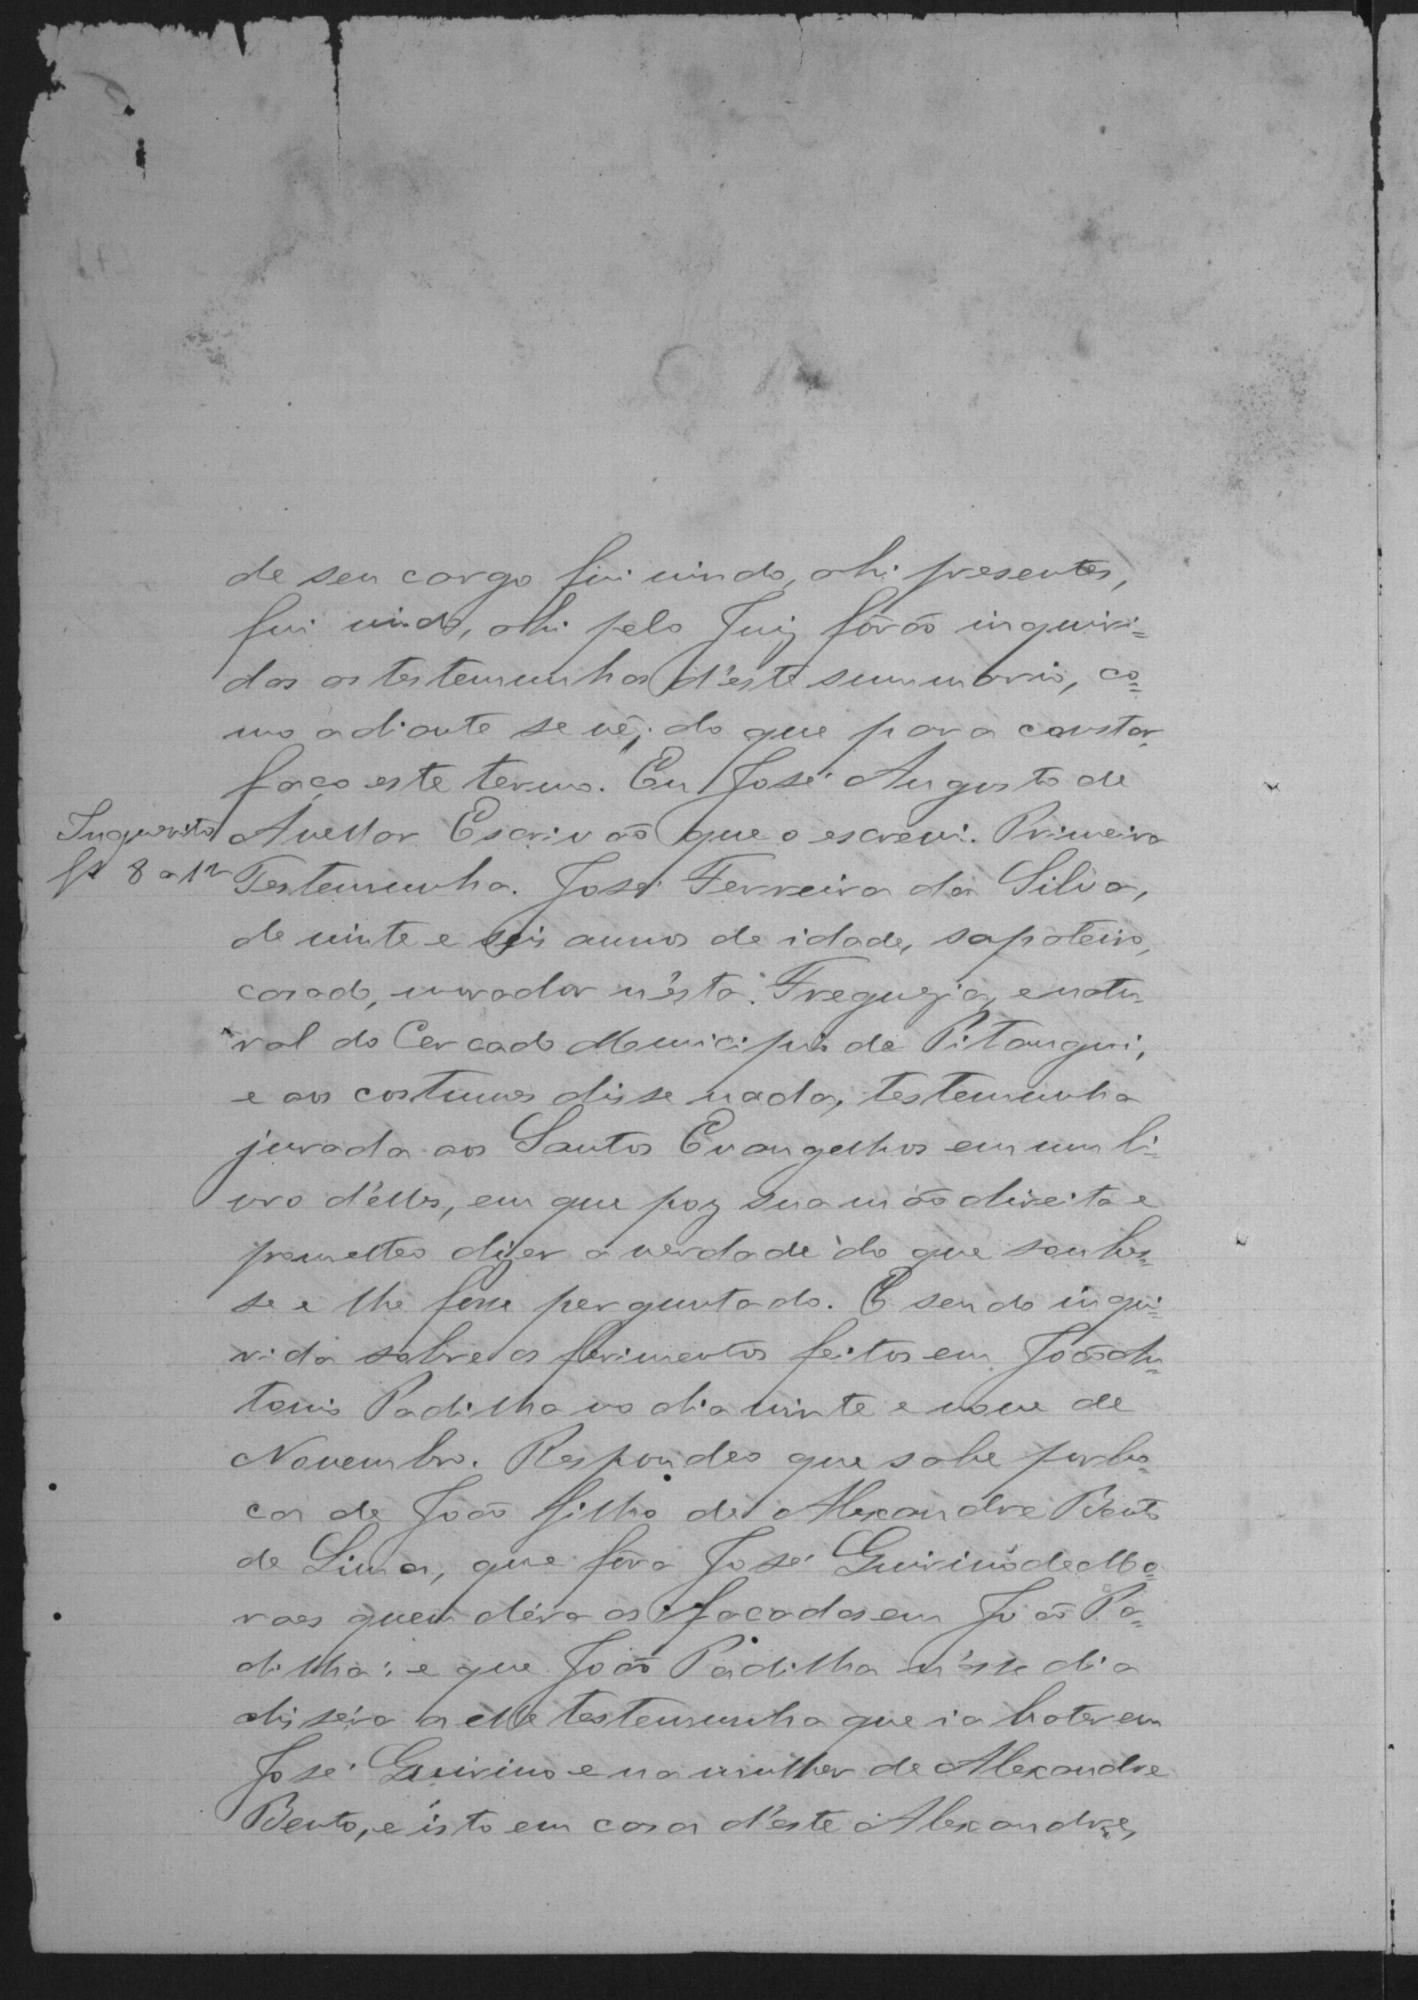 de seu cargo fui vindo, ahi presentes,
fui vindo, ahi pelo Juiz fôrão inquiri=
das as testemunhas d'este summario, co=
mo adiante se vê; do que para constar,
faço este termo. Eu José Augusto de
Inquerito
fs 8 a 12
Avellar Escrivão que o escrevi. Primeira
Testemunha. José Ferreira da Silva,
de vinte e seis annos de idade, sapateiro,
casado, morador n'esta Freguezia, e natu=
ral do Cercado Municipio de Pitanguy,
e aos costumes disse nada, testemunha
jurada aos Santos Evangelhos em um li=
vro d'elles, em que poz sua mão direita e
prometteo dizer a verdade do que soubes=
se e lhe fosse perguntado. E sendo inqui=
rida sobre os ferimentos feitos em João An=
tonio Padilha no dia vinte e nove de
Novembro. Respondeo que sabe por bo=
ca de João filho de Alexandre Bento
de Lima, que fôra José Guirino de Mo=
raes quem déra as facadas em João Pa=
dilha: e que João Padilha n'este dia
disséra a elle testemunha que ia bater em
José Guirino e na mulher de Alexandre
Bento, e isto em casa d'este Alexandre,